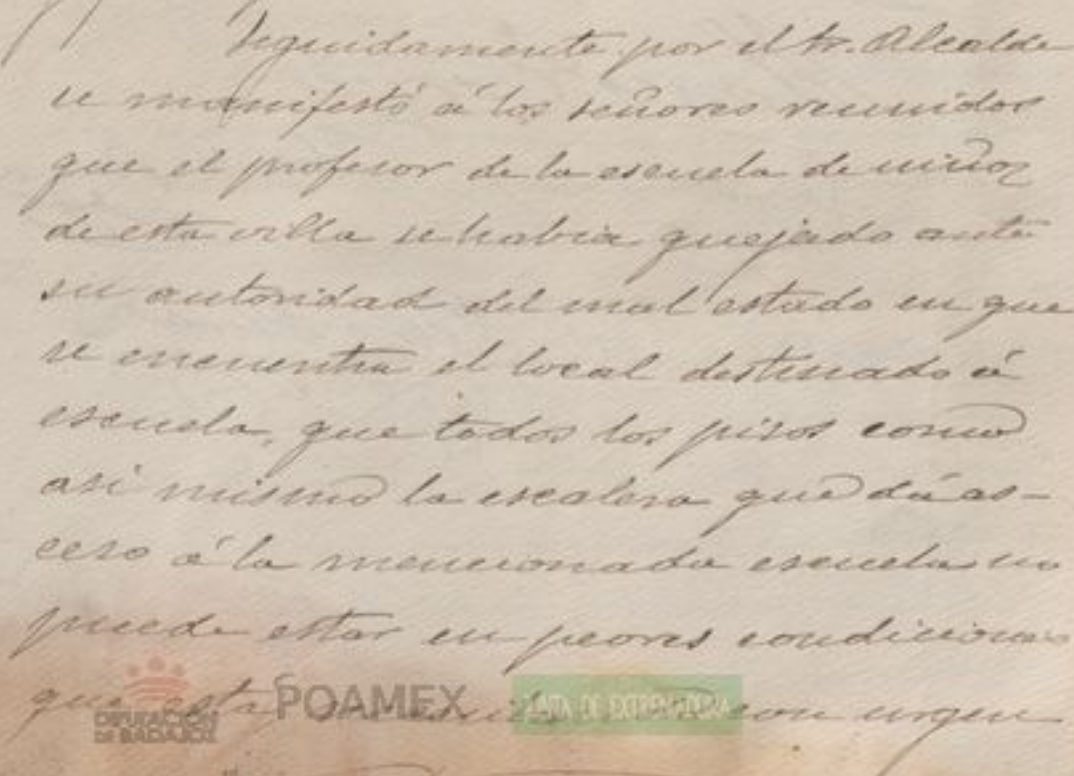 Seguidamente por el Sr. Alcalde
se manifestó á los señores reunidos
que el profesor de la escuela de niños
de esta villa se habia quejado ante
su autoridad del mal estado en que
se encuentra el local destinado á
escuela, que todos los pisos como
asi mismo la escalera que dá as-
ceso á la mencionada escuela no
puede estar en peores condiciones
que esta con urgen
DIPUTACIÓN DE BADAJOZ
POAMEX
JUNTA DE EXTREMADURA